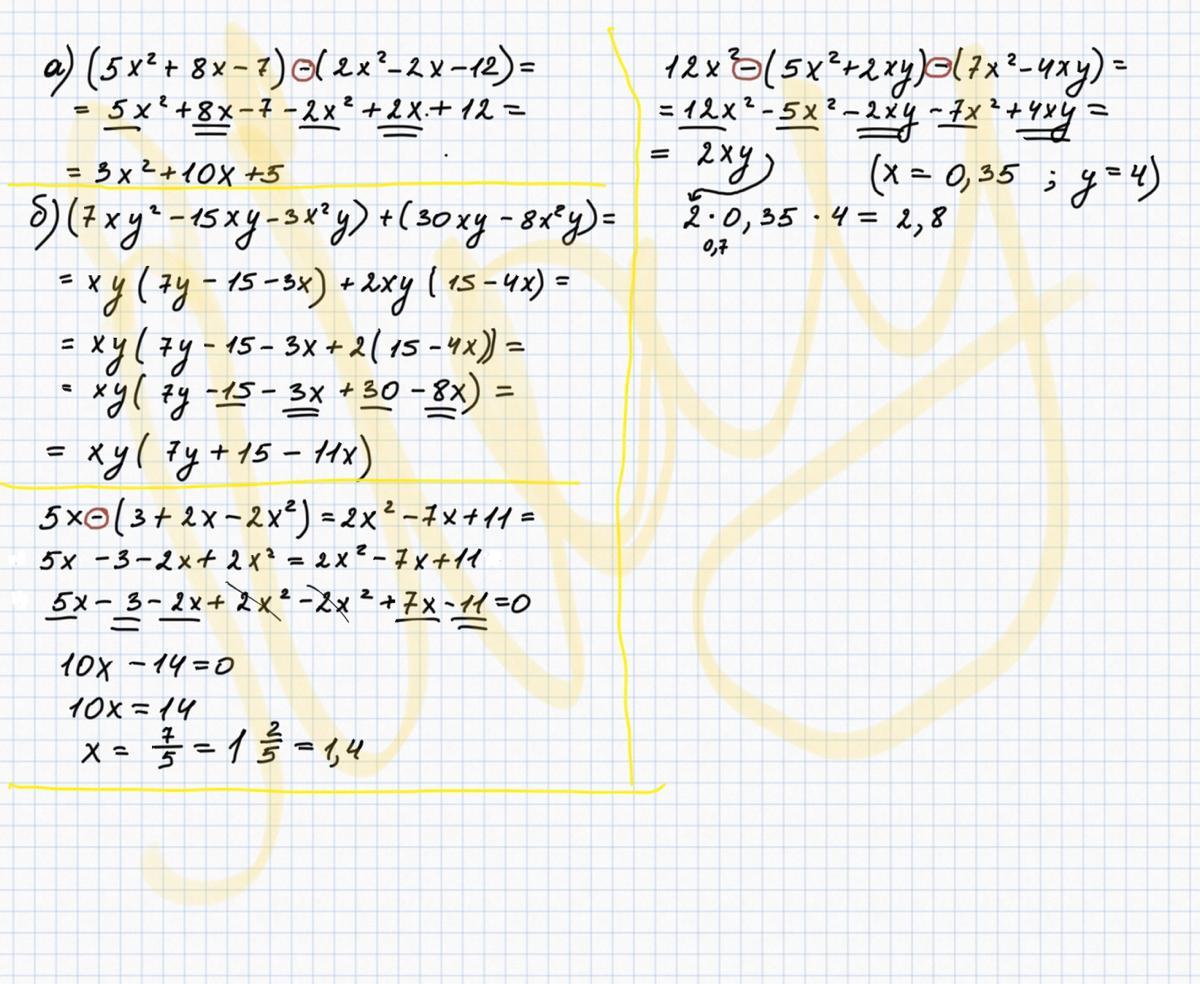 а) (5x² + 8x - 7) - (2x² - 2x - 12) =
= 5x² + 8x - 7 - 2x² + 2x + 12 =
= 3x² + 10x + 5
б) (7xy² - 15xy - 3x²y) + (30xy - 8x²y) =
= xy(7y - 15 - 3x) + 2xy(15 - 4x) =
= xy(7y - 15 - 3x + 2(15 - 4x)) =
= xy(7y - 15 - 3x + 30 - 8x) =
= xy(7y + 15 - 11x)
5x - (3 + 2x - 2x²) = 2x² - 7x + 11 =
5x - 3 - 2x + 2x² = 2x² - 7x + 11
5x - 3 - 2x + 2x² - 2x² + 7x - 11 = 0
10x - 14 = 0
10x = 14
x = 7/5 = 1 2/5 = 1,4
12x² - (5x² + 2xy) - (7x² - 4xy) =
= 12x² - 5x² - 2xy - 7x² + 4xy =
= 2xy (x = 0,35 ; y = 4)
2 · 0,35 · 4 = 2,8
0,7